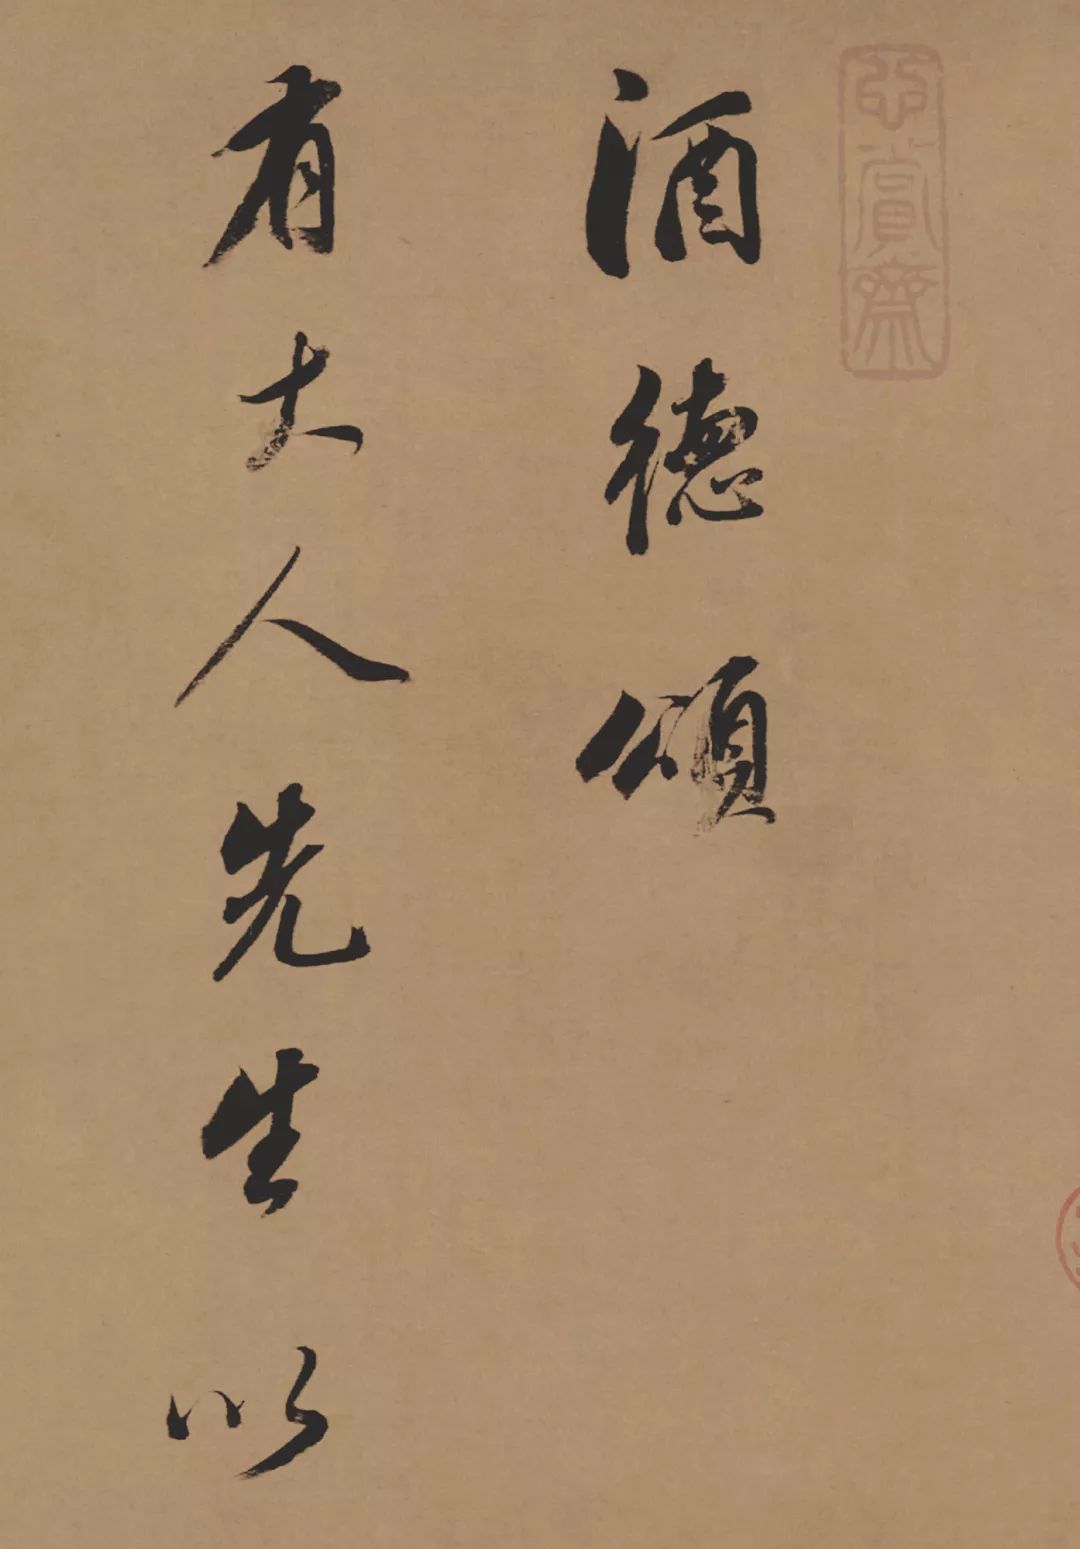 酒德頌
有大人先生以
賞齋